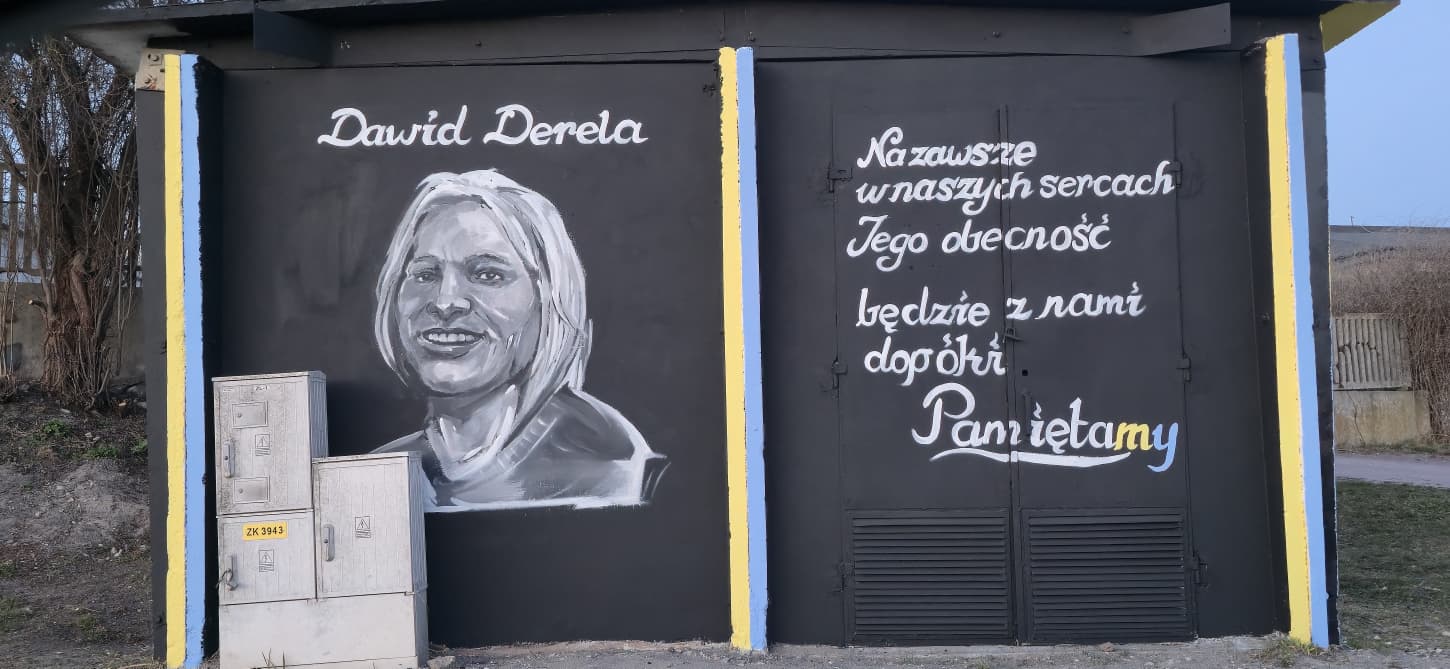 Dawid Derela
Na zawsze
w naszych sercach
Jego obecność
będzie z nami
dopóki
Pamiętamy
ZK 3943